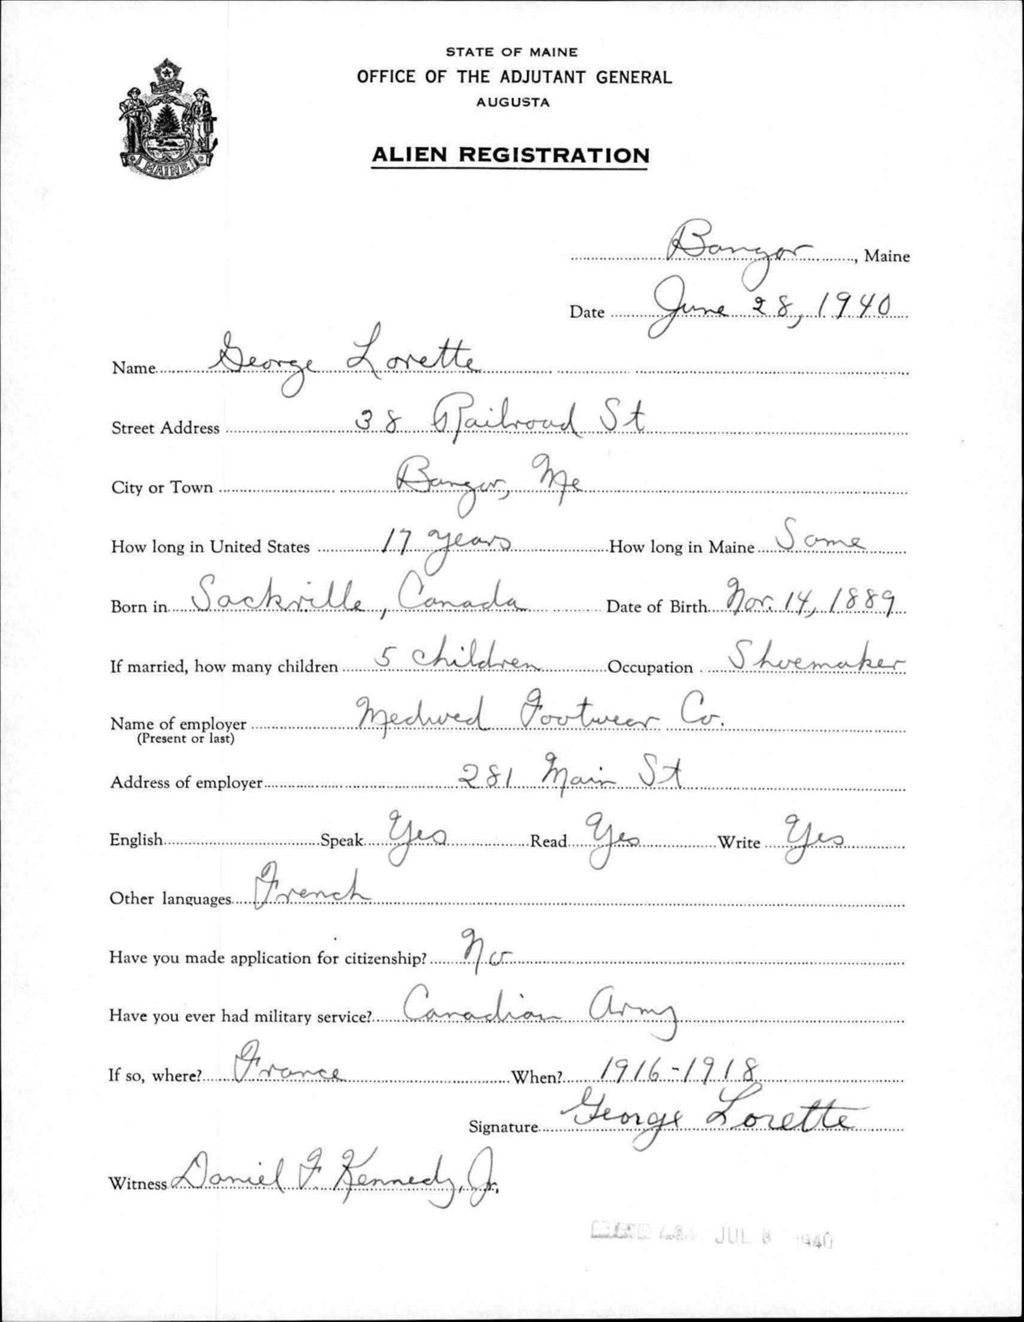 STATE OF MAINE
OFFICE OF THE ADJUTANT GENERAL
AUGUSTA
ALIEN REGISTRATION
MAINE
Bangor, Maine
Date June 28, 1940
Name George Lorette
Street Address 38 Railroad St
City or Town Bangor, Me
How long in United States 17 years How long in Maine Same
Born in Sackville, Canada Date of Birth Nov. 14, 1889
If married, how many children 5 children Occupation Shoemaker
Name of employer Medwed Footwear Co.
(Present or last)
Address of employer 281 Main St
English Speak Yes Read Yes Write Yes
Other languages French
Have you made application for citizenship? No
Have you ever had military service? Canadian Army
If so, where? France When? 1916-1918
Signature George Lorette
Witness Daniel F Kennedy, Jr.
JUL 1940